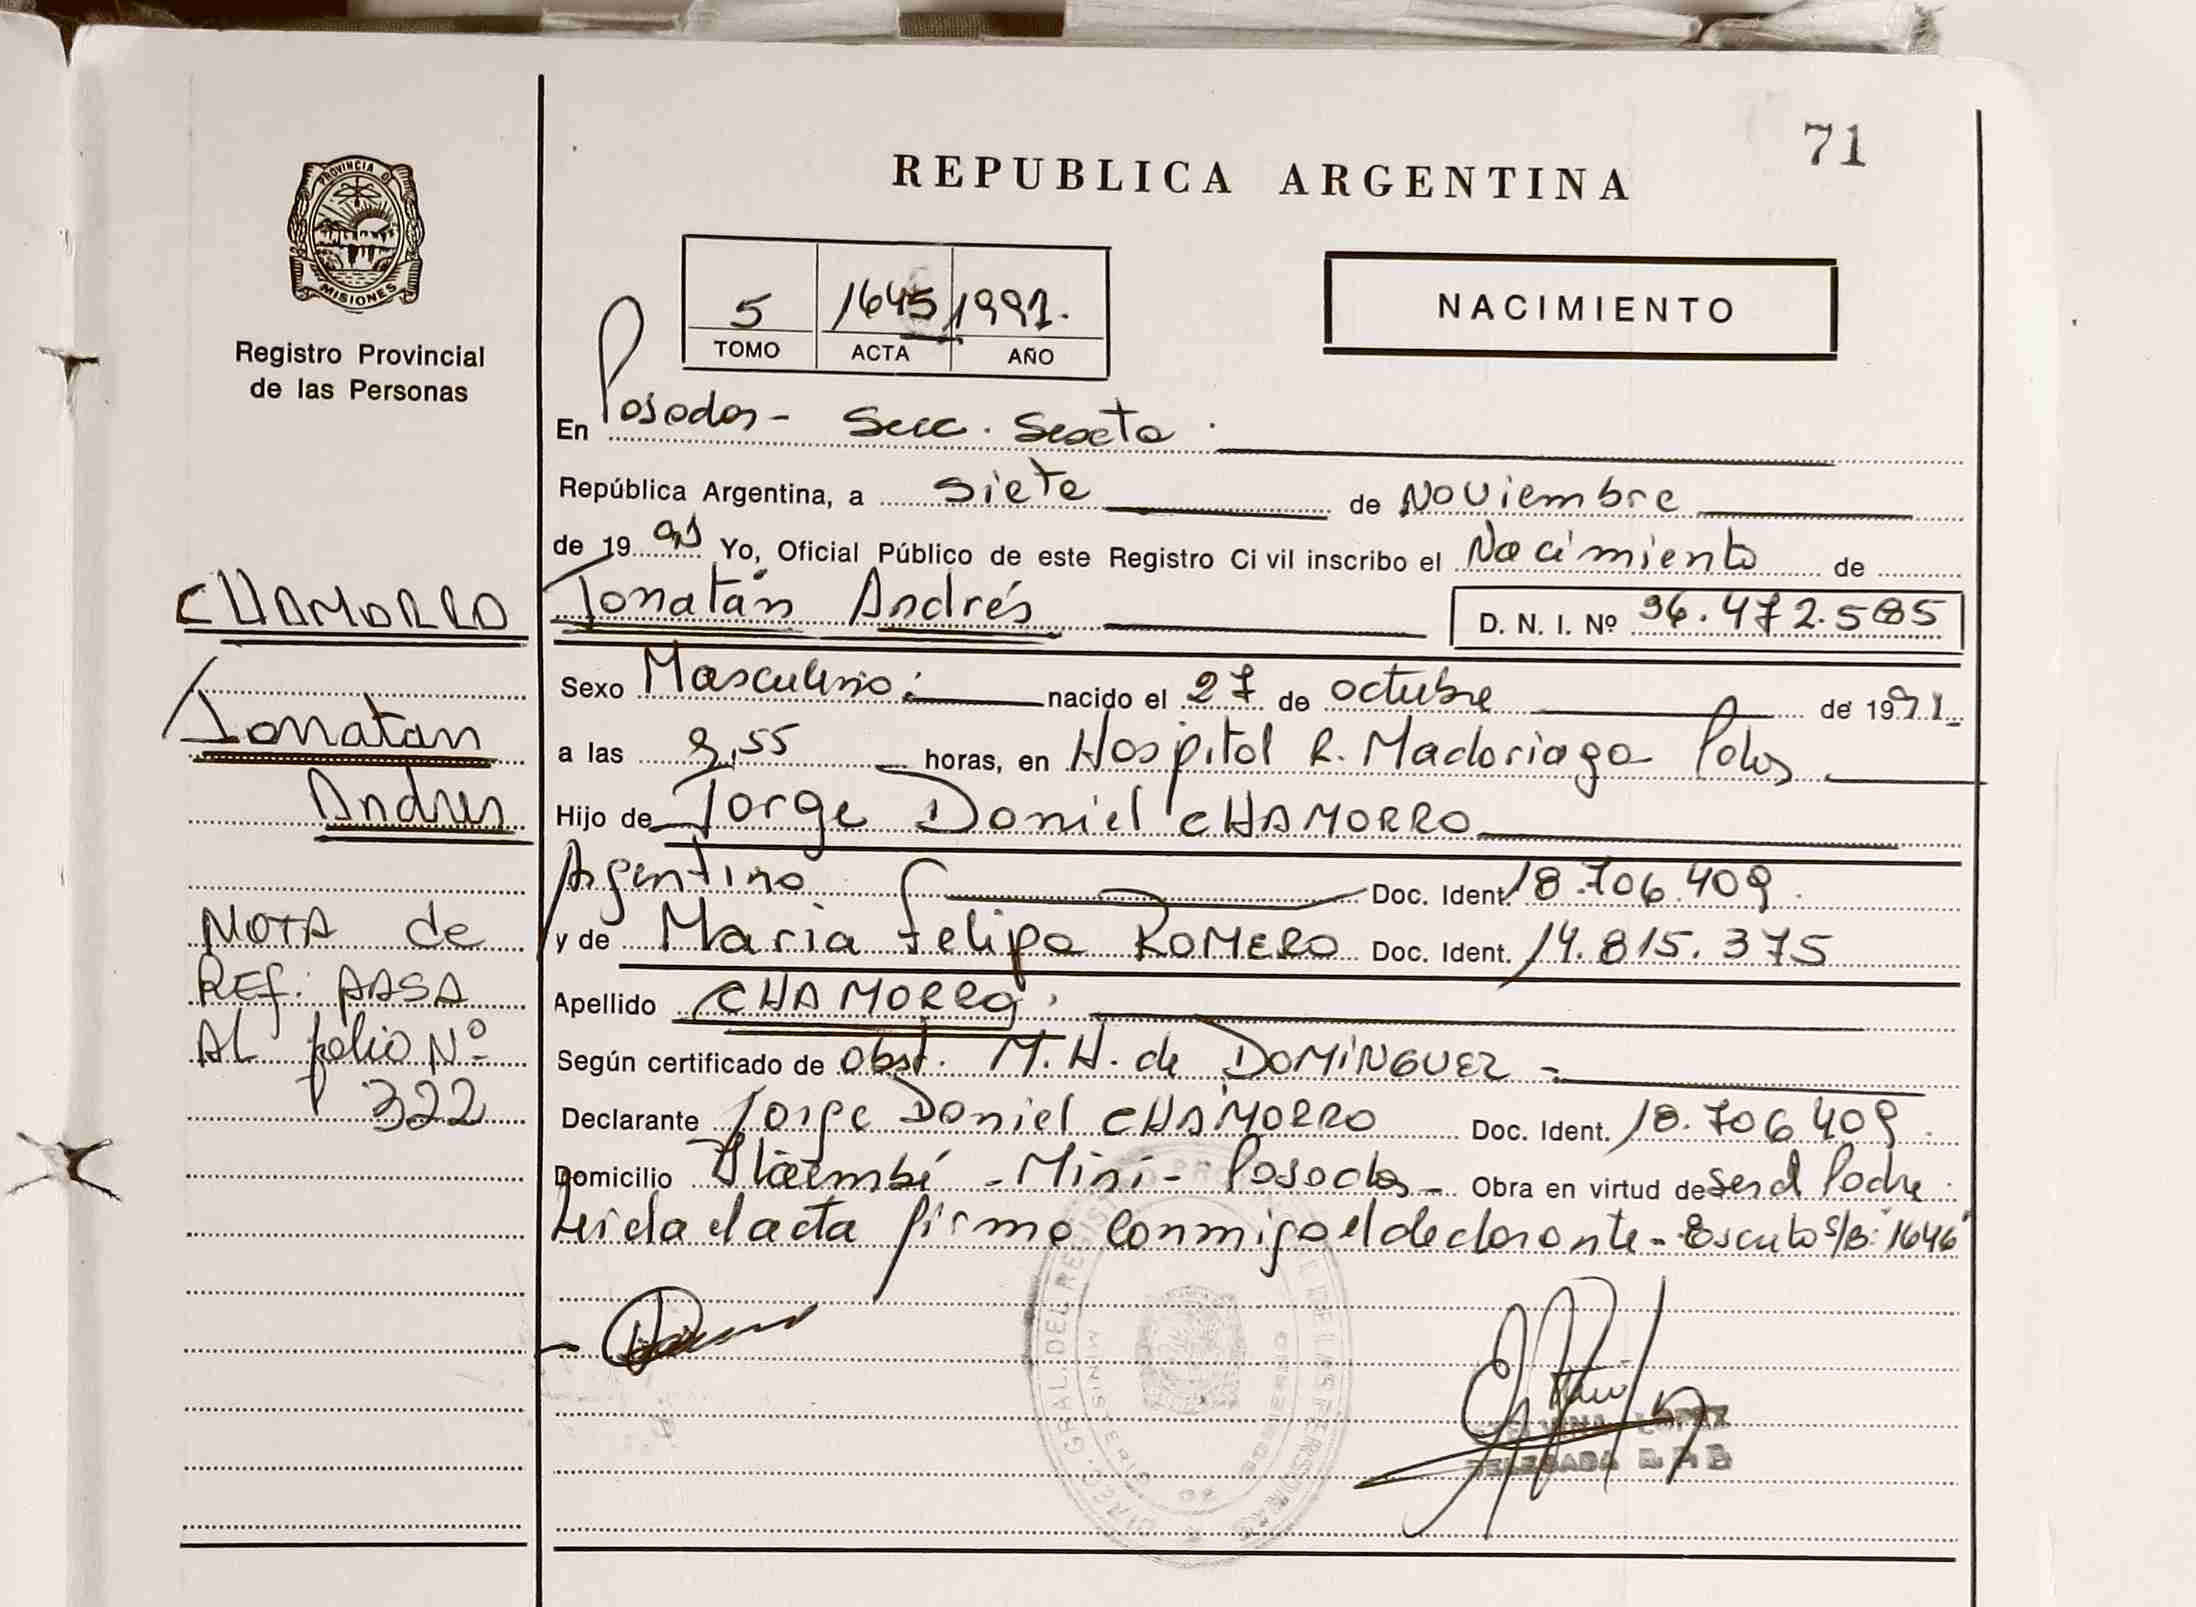 71
REPUBLICA ARGENTINA
PROVINCIA DE
MISIONES
Registro Provincial
de las Personas
5 1645 1991.
TOMO ACTA AÑO
NACIMIENTO
En Posadas - Secc. Sexta.
República Argentina, a siete de Noviembre
de 1991 Yo, Oficial Público de este Registro Civil inscribo el Nacimiento de
Jonatán Andrés D. N. I. Nº 36.472.585
CHAMORRO
Jonatan
Andrés
Sexo Masculino: nacido el 27 de octubre de 1991
a las 9,55 horas, en Hospital R. Madariaga Pdas
Hijo de Jorge Daniel CHAMORRO
Argentino Doc. Ident. 18.706.409.
y de Maria Felipa ROMERO Doc. Ident. 14.815.375
Apellido CHAMORRO.
Según certificado de obst. M. H. de DOMíNGUEZ -
Declarante Jorge Daniel CHAMORRO Doc. Ident. 18.706.409.
Domicilio Itaembé - Mini - Posadas - Obra en virtud de ser el Padre.
Leida el acta firma conmigo el declarante - S/B: "1646"
NOTA de
REF: PASA
AL folio Nº
322
LOPEZ
DELEGADA R. P.